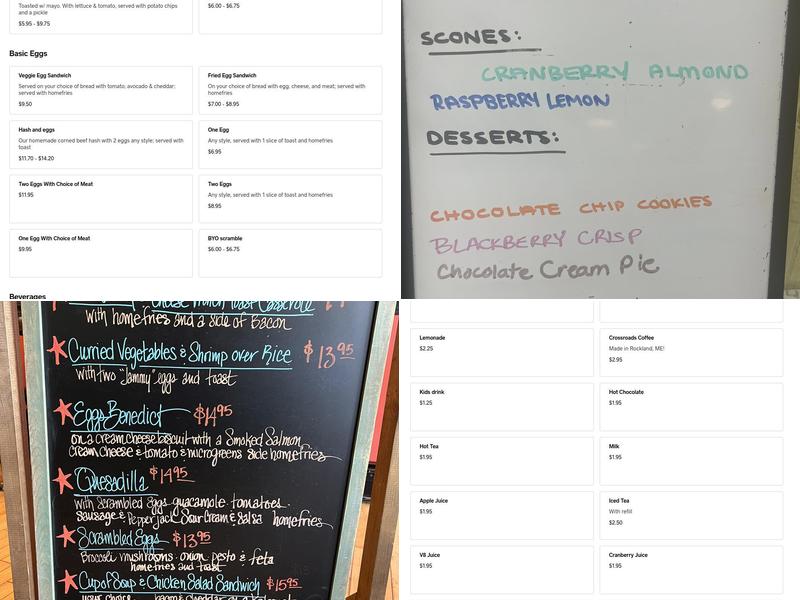 Toasted w/ mayo. With lettuce & tomato, served with potato chips
and a pickle
$5.95 - $9.75
$6.00 - $6.75
Basic Eggs
Veggie Egg Sandwich
Served on your choice of bread with tomato, avocado & cheddar;
served with homefries
$9.50
Fried Egg Sandwich
On your choice of bread with egg, cheese, and meat; served with
homefries
$7.00 - $8.95
Hash and eggs
Our homemade corned beef hash with 2 eggs any style; served with
toast
$11.70 - $14.20
One Egg
Any style, served with 1 slice of toast and homefries
$6.95
Two Eggs With Choice of Meat
$11.95
Two Eggs
Any style, served with 1 slice of toast and homefries
$8.95
One Egg With Choice of Meat
$9.95
BYO scramble
$6.00 - $6.75
Beverages
SCONES:
CRANBERRY ALMOND
RASPBERRY LEMON
DESSERTS:
CHOCOLATE CHIP COOKIES
BLACKBERRY CRISP
Chocolate Cream Pie
Toast Casserole
with homefries and a side of Bacon
Curried Vegetables & Shrimp over Rice $13.95
with two "Jammy" eggs and toast
Eggs Benedict $14.95
on a cream cheese biscuit with a Smoked Salmon
cream cheese & tomato & microgreens side homefries
Quesadilla $14.95
with Scrambled Eggs guacamole tomatoes
sausage & Pepper jack Sour Cream & Salsa homefries
Scrambled Eggs $13.95
Broccoli mushrooms onion pesto & feta
homefries and toast
Cup of Soup & Chicken Salad Sandwich $15.95
your choice
Lemonade
$2.25
Crossroads Coffee
Made in Rockland, ME!
$2.95
Kids drink
$1.25
Hot Chocolate
$1.95
Hot Tea
$1.95
Milk
$1.95
Apple Juice
$1.95
Iced Tea
With refill
$2.50
V8 Juice
$1.95
Cranberry Juice
$1.95